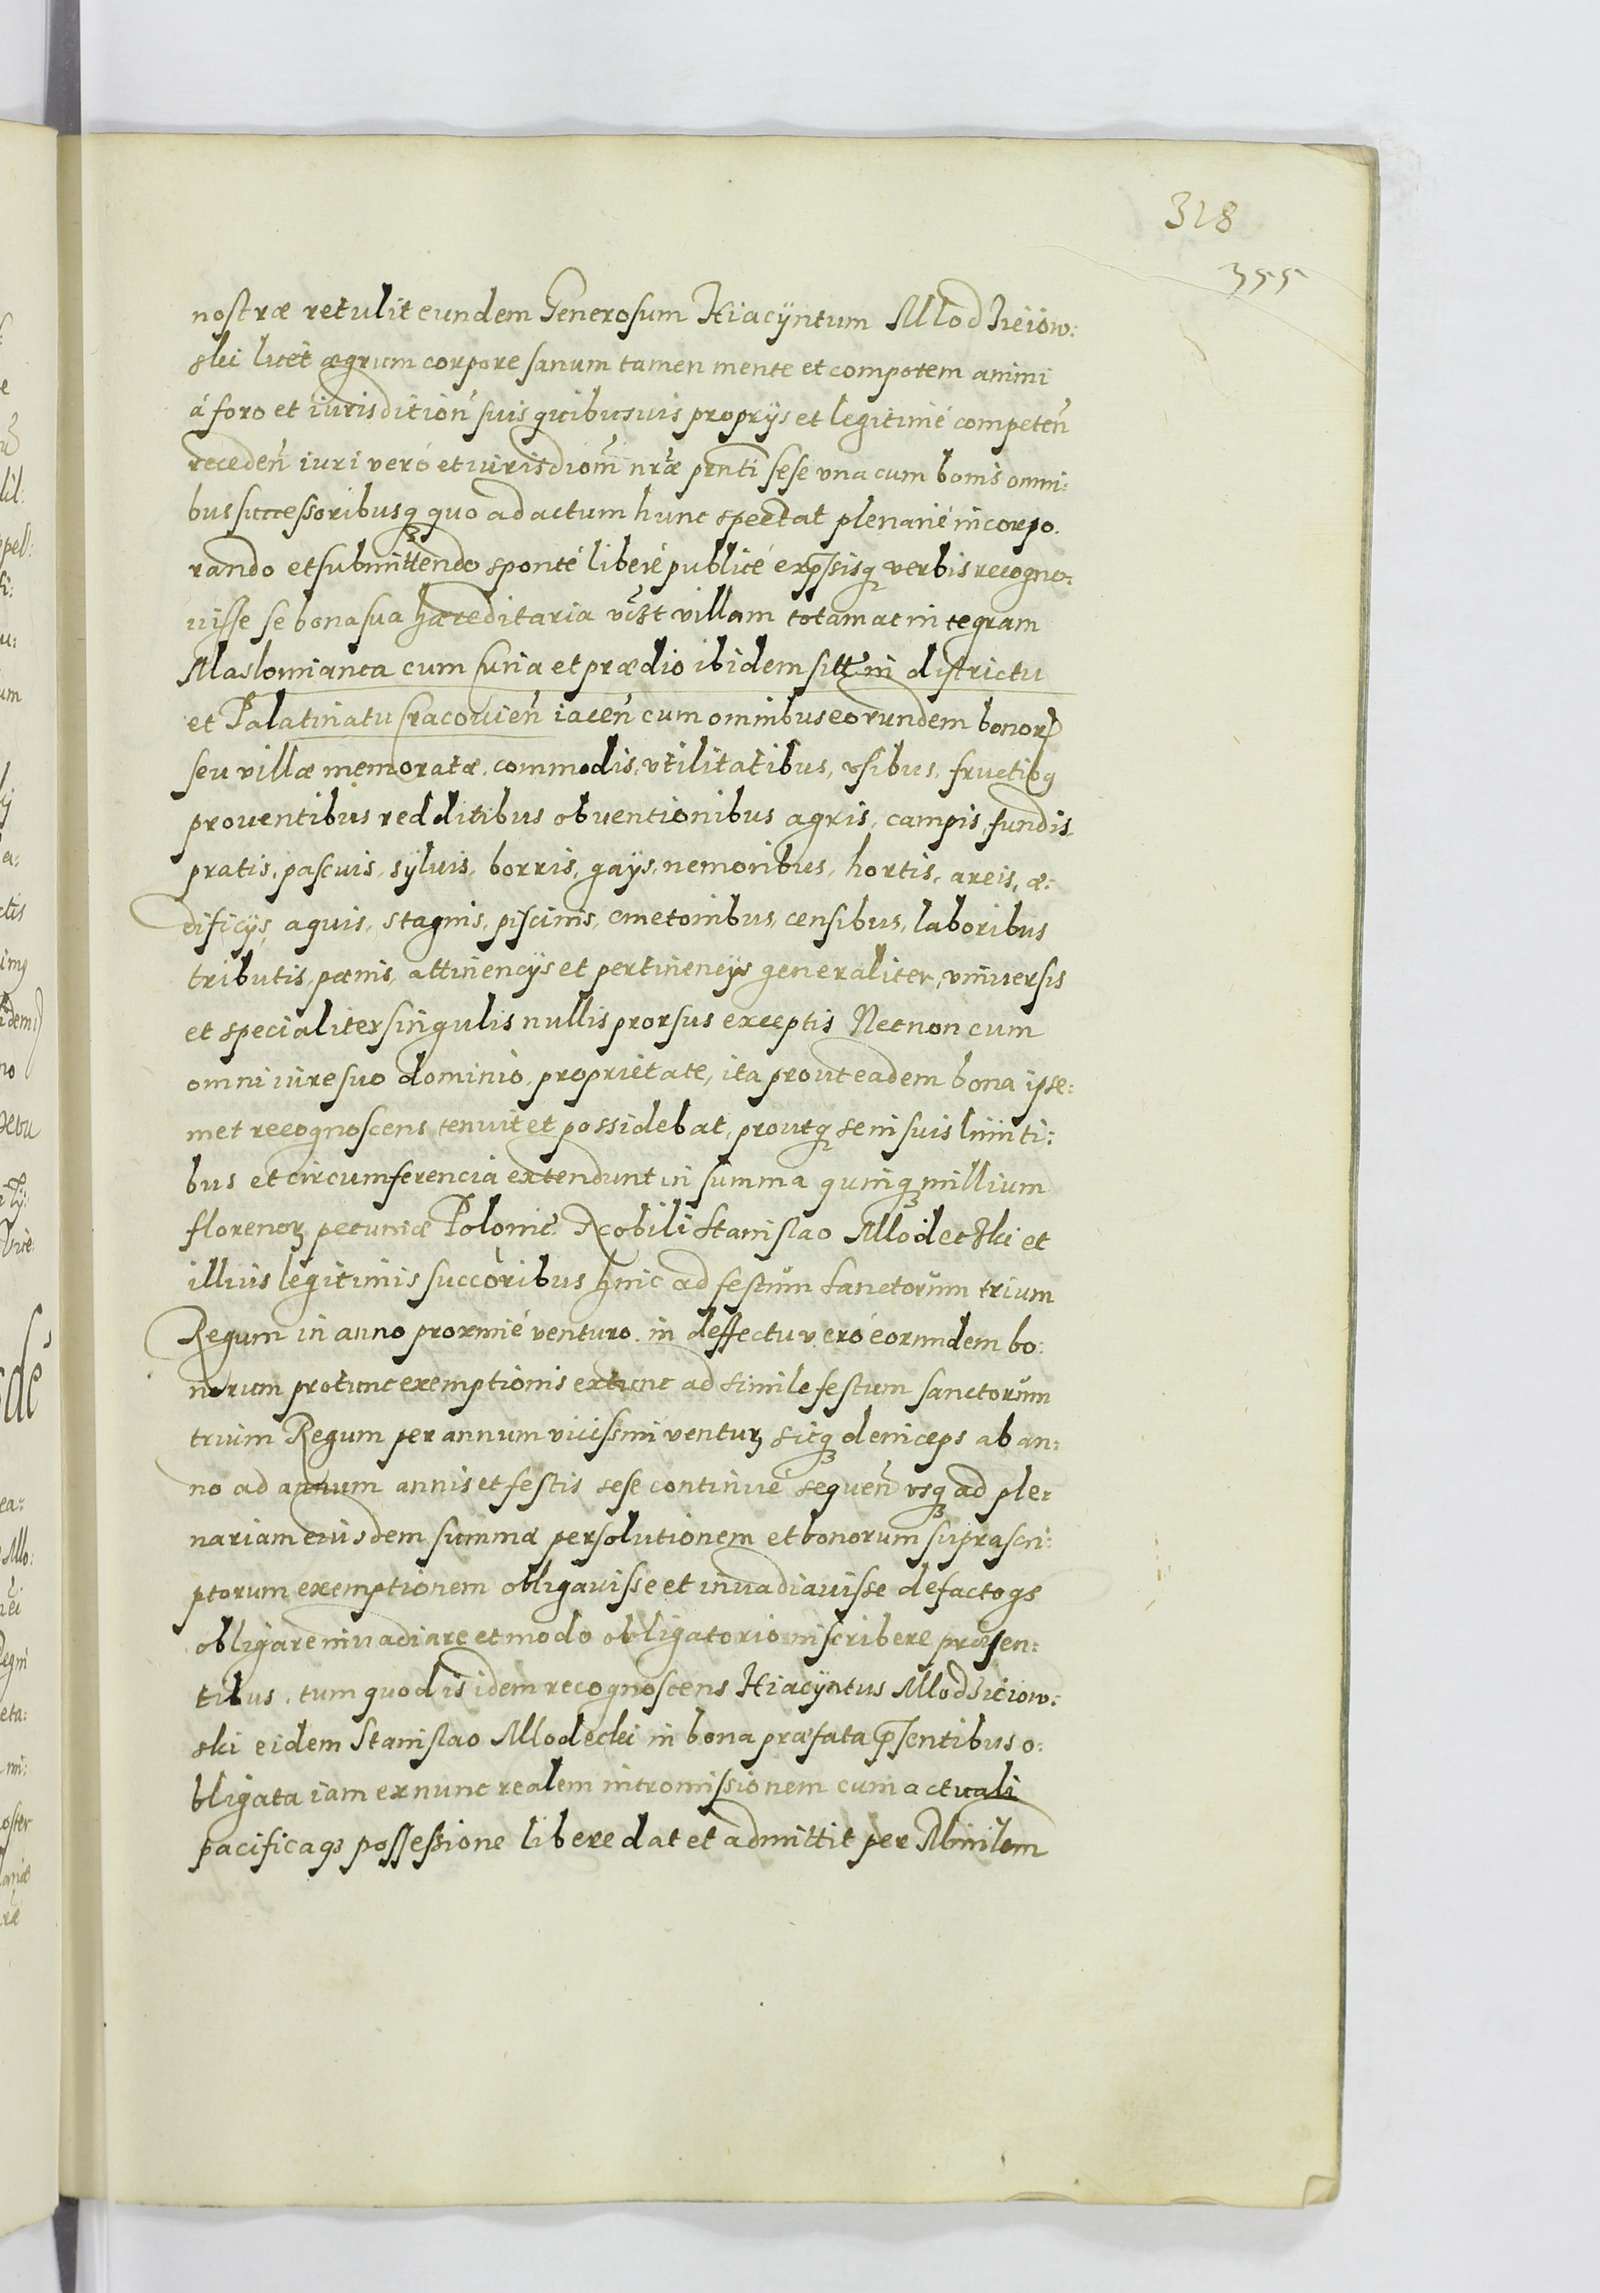 328
355
nostræ retulit eundem Generosum Hiacÿntum Mlodzieiow:
ski licet ægrum corpore sanum tamen mente et compotem animi
á foro et iurisdition̄ suis quibusuis proprÿs et legitimé competen̄
receden̄ iuri veró et iurisdiom̄ nr̄æ pn̄ti sese vna cum bonis omni:
bus successoribusq̨ quo ad actum hunc spectat plenarié incorpo.
rando et submittendo sponté liberé publicé exp̄ssisq̨ verbis recogno:
uisse se bona sua hæreditaria vc̄zt villam totam ac integram
Maslomianca cum Curia et prædio ibidem sitt̄ in districtu
et Palatinatu Cracouien̄ iacen̄ cum omnibus eorundem bonorꝝ
seu villæ memoratæ, commodis, vtilitatibus, vsibus, fructibq̨
prouentibus redditibus obuentionibus agris, campis, fundis,
pratis, pascuis, sÿluis, borris, gaÿs, nemoribus, hortis, areis, æ:
dificÿs, aquis, stagnis, piscinis, cmetonibus, censibus, laboribus
tributis, pænis, attinencÿs et pertinencÿs generaliter, vniuersis
et specialiter singulis nullis prorsus exceptis Necnon cum
omni iure suo dominio, proprietate, ita prout eadem bona ipse:
met recognoscens tenuit et possidebat, proutq̨ se in suis limiti:
bus et circumferencia extendunt in summa quinq̨ millium
florenoꝝ pecuniæ Polonic̄. Nobili Stanislao Mlodeczki et
illius legitimis succoribus hinc ad festum Sanctorum trium
Regum in anno proximé venturo. in deffectu veró eorundem bo:
norum protunc exemptionis extunc ad simile festum sanctorum
trium Regum per annum vicissim ventuꝝ sicq̨ deniceps ab an:
no ad annum annis et festis sese continué sequen̄ vsq̨ ad ple:
nariam eiusdem summæ persolutionem et bonorum suprascri:
ptorum exemptionem obligauisse et inuadiauisse defactoqs
obligare inuadiare et modo obligatorio inscribere præsen:
tibus. tum quod is idem recognoscens Hiacÿntus Mlodzieiow:
ski eidem Stanislao Mlodecki in bona præfata p̄sentibus o:
bligata iam exnunc realem intromissionem cum actuali
pacificaqs possessione libere dat et admittit per Minilem